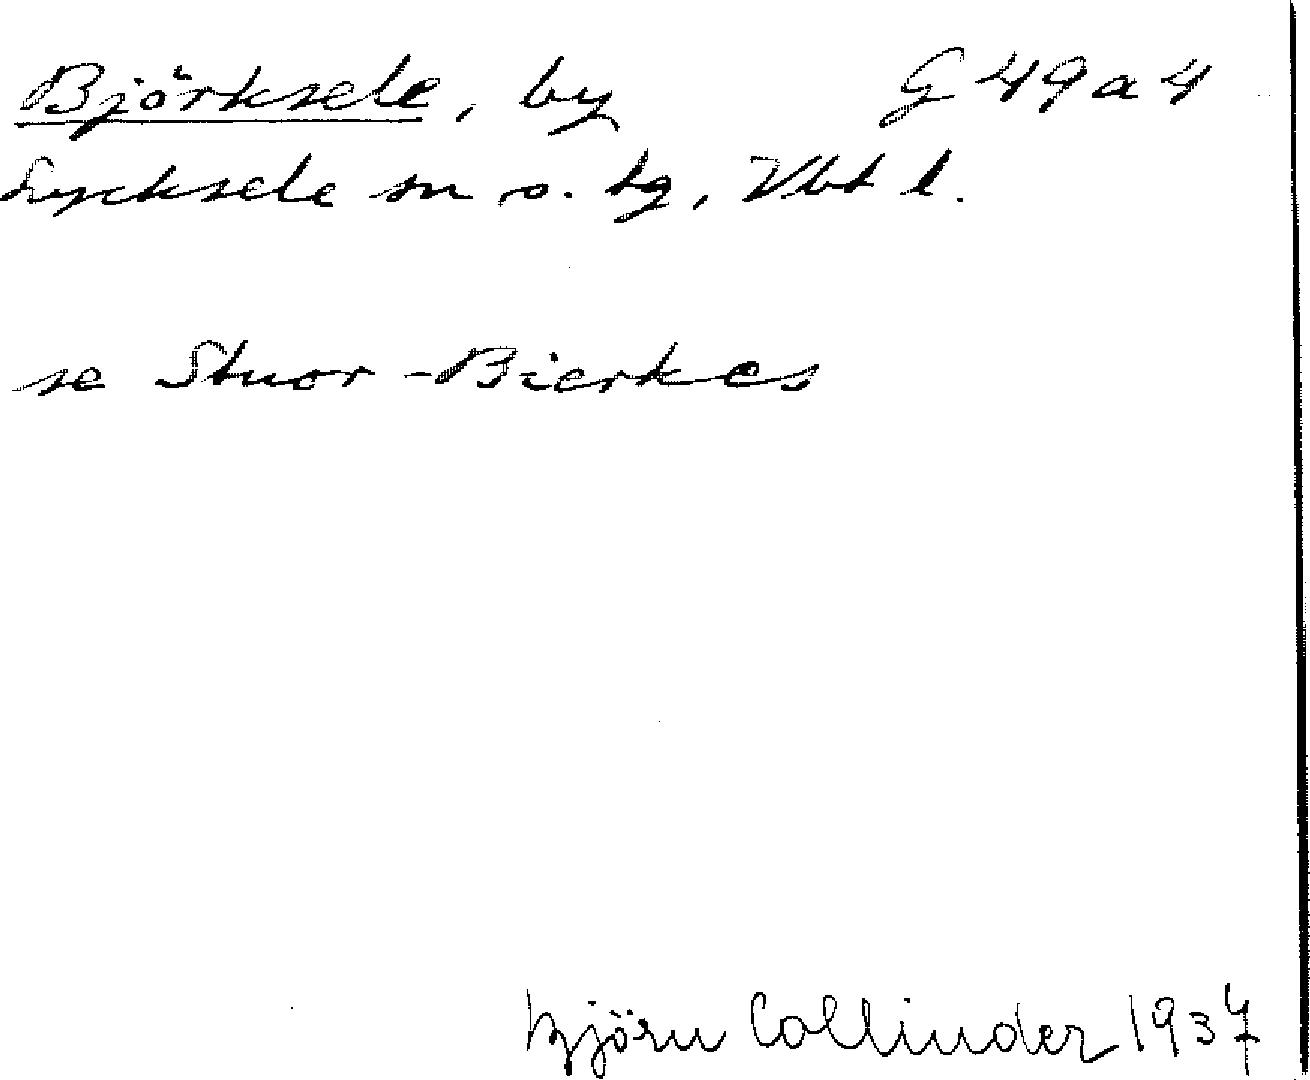 Björksele, by G 49 a 4
Lycksele sn o. tg, Vbt l.
se Stuor-Bierkes
Björn Collinder 1937